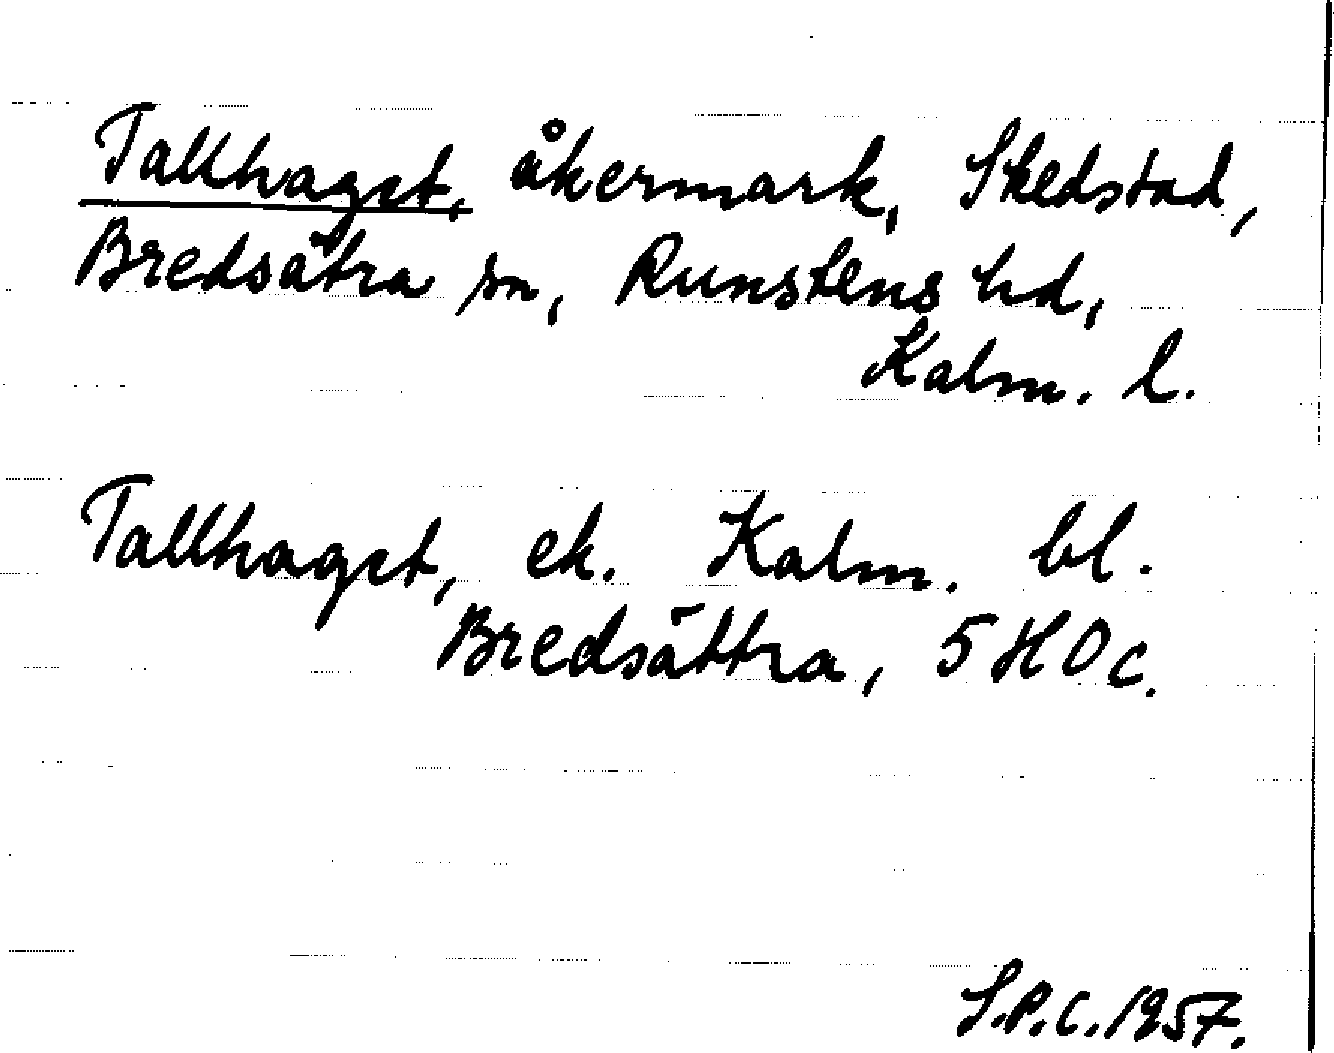 Tallhaget, åkermark, Skedstad,
Bredsätra sn, Runstens hd,
Kalm. l.
Tallhaget, ek. Kalm. bl.
Bredsättra, 5 H 0 c.
S.P.C. 1957.